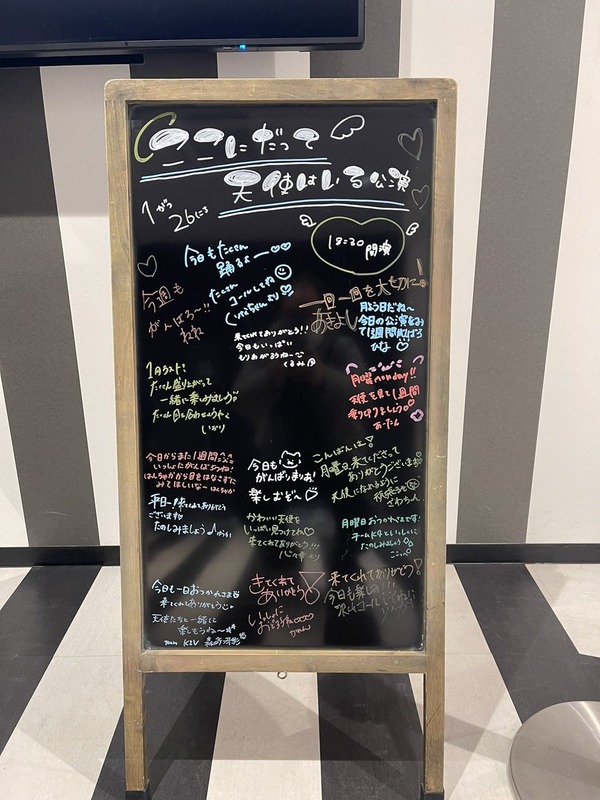 ここにだって
天使はいる公演
1がつ
26にち
18:30 開演
今日もたくさん
踊るよー♡♡
たくさん
コールしてね
今週も
がんばろ〜!!
ねね
一回一回を大切に!
あきよし
来てくれてありがとう!!
今日もいっぱい
もりあがろうね〜
くるみ
月よう日だね〜
今日の公演をみ
て1週間がんばろ
ひな♡
1月ラスト!
たくさん盛り上がって
一緒に楽しみましょう
たくさん目を合わせようね
いおり
月曜monday!!
天使を見て1週間
乗り切りましょう
あーたん
今日からまた1週間
いっしょにがんばろうね!
はんちゃんから目をはなさずに
みててほしいなー はんちゃん
今日も
がんばりまりお!
楽しむぞい♡
こんばんは!
月曜日、来てくださって
ありがとうございます
天使になれるように
さわちん
平日に来てくれてありがとう
ございます
たのしみましょう♪
かわいい天使を
いっぱい見つけてね♡
来てくれてありがとう!!!
心々華より
月曜日おつかれさまです!
チームK4といっしょに
たのしみましょう
今日も一日おつかれさま
来てくれてありがとう
天使たちと一緒に
楽しもうね〜
Team KIV
きてくれて
ありがとう!
いっしょに
来てくれてありがとう!
今日も楽しめ!!